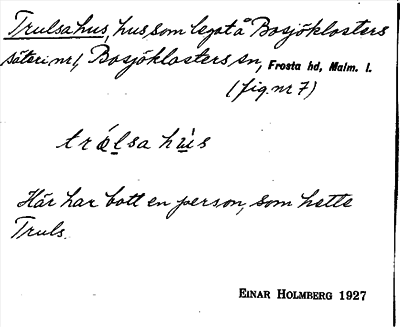 Trulsahus, hus, som legat å Bosjöklosters
säteri nr 1, Bosjöklosters sn, Frosta hd, Malm. l.
(fig. nr 7)
trolsa hus
Här har bott en person, som hette
Truls.
EINAR HOLMBERG 1927